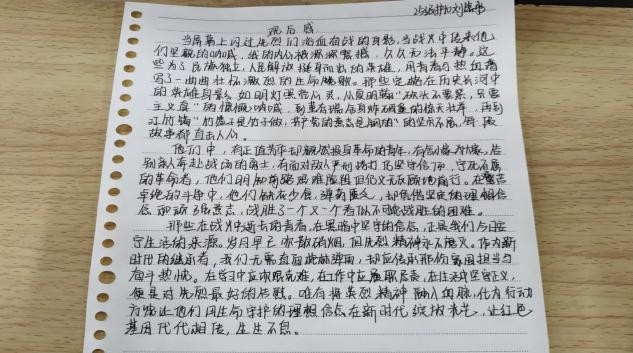 观后感
当屏幕上闪过先烈们浴血奋战的身影，当战火中传来他
们坚毅的呐喊，我的内心被深深震撼，久久无法平静。这
些为了民族独立、人民解放挺身而出的英雄，用青春热血谱
写了一曲曲壮怀激烈的生命赞歌。那些定格在历史长河中
的英雄身影，如明灯照亮人心，从夏明翰“砍头不要紧，只要
主义真”的慷慨呐喊，到董存瑞舍身炸碉堡的惊天壮举，再到
江竹筠“竹签子是竹子做，共产党的意志是钢铁”的坚贞不屈，每段
故事都直击人心。
他们中，有正值芳华却毅然投身革命的青年，有告别
别亲人奔赴战场的勇士，有面对敌人严刑拷打仍坚守信仰，宁死不屈
的革命者，他们明知前路艰难险阻但仍义无反顾地前行。在
卓绝的斗争中，他们缺衣少食，弹药匮乏，却凭借坚定的理想信
念和顽强意志，战胜了一个又一个看似不可能战胜的困难。
那些在战火中逝去的青春，在黑暗中坚守的信念，正是我们今日安
宁生活的来源。岁月早已吹散硝烟，但先烈精神永不磨灭。作为新
时代的继承者，我们无需直面枪林弹雨，却应传承那份家国担当与
奋斗热忱。在学习中应攻艰克难，在工作中应履职尽责，在生活中坚守正义，
便是对先烈最好的告慰。唯有将英烈精神融入血脉，化为行动
方能让他们用生命守护的理想信念在新时代绽放光芒，让红色
基因代代相传，生生不息。